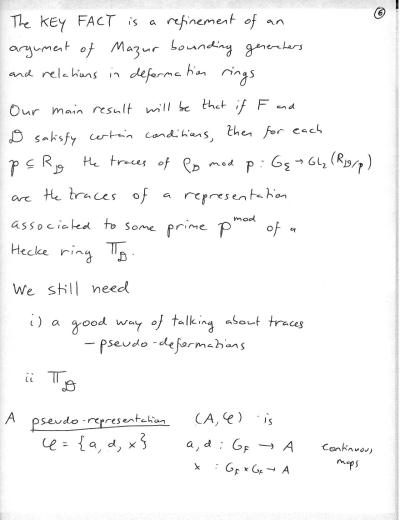 ⑥
The KEY FACT is a refinement of an
argument of Mazur bounding generators
and relations in deformation rings
Our main result will be that if F and
𝒟 satisfy certain conditions, then for each
p ⊆ R_𝒟 the traces of ρ_𝒟 mod p : G_Σ → GL₂(R_𝒟/p)
are the traces of a representation
associated to some prime p^mod of a
Hecke ring 𝕋_𝒟.
We still need
i) a good way of talking about traces
– pseudo-deformations
ii 𝕋_𝒟
A pseudo-representation (A, φ) is
φ = {a, d, x} a, d : G_F → A continuous
x : G_F × G_F → A maps